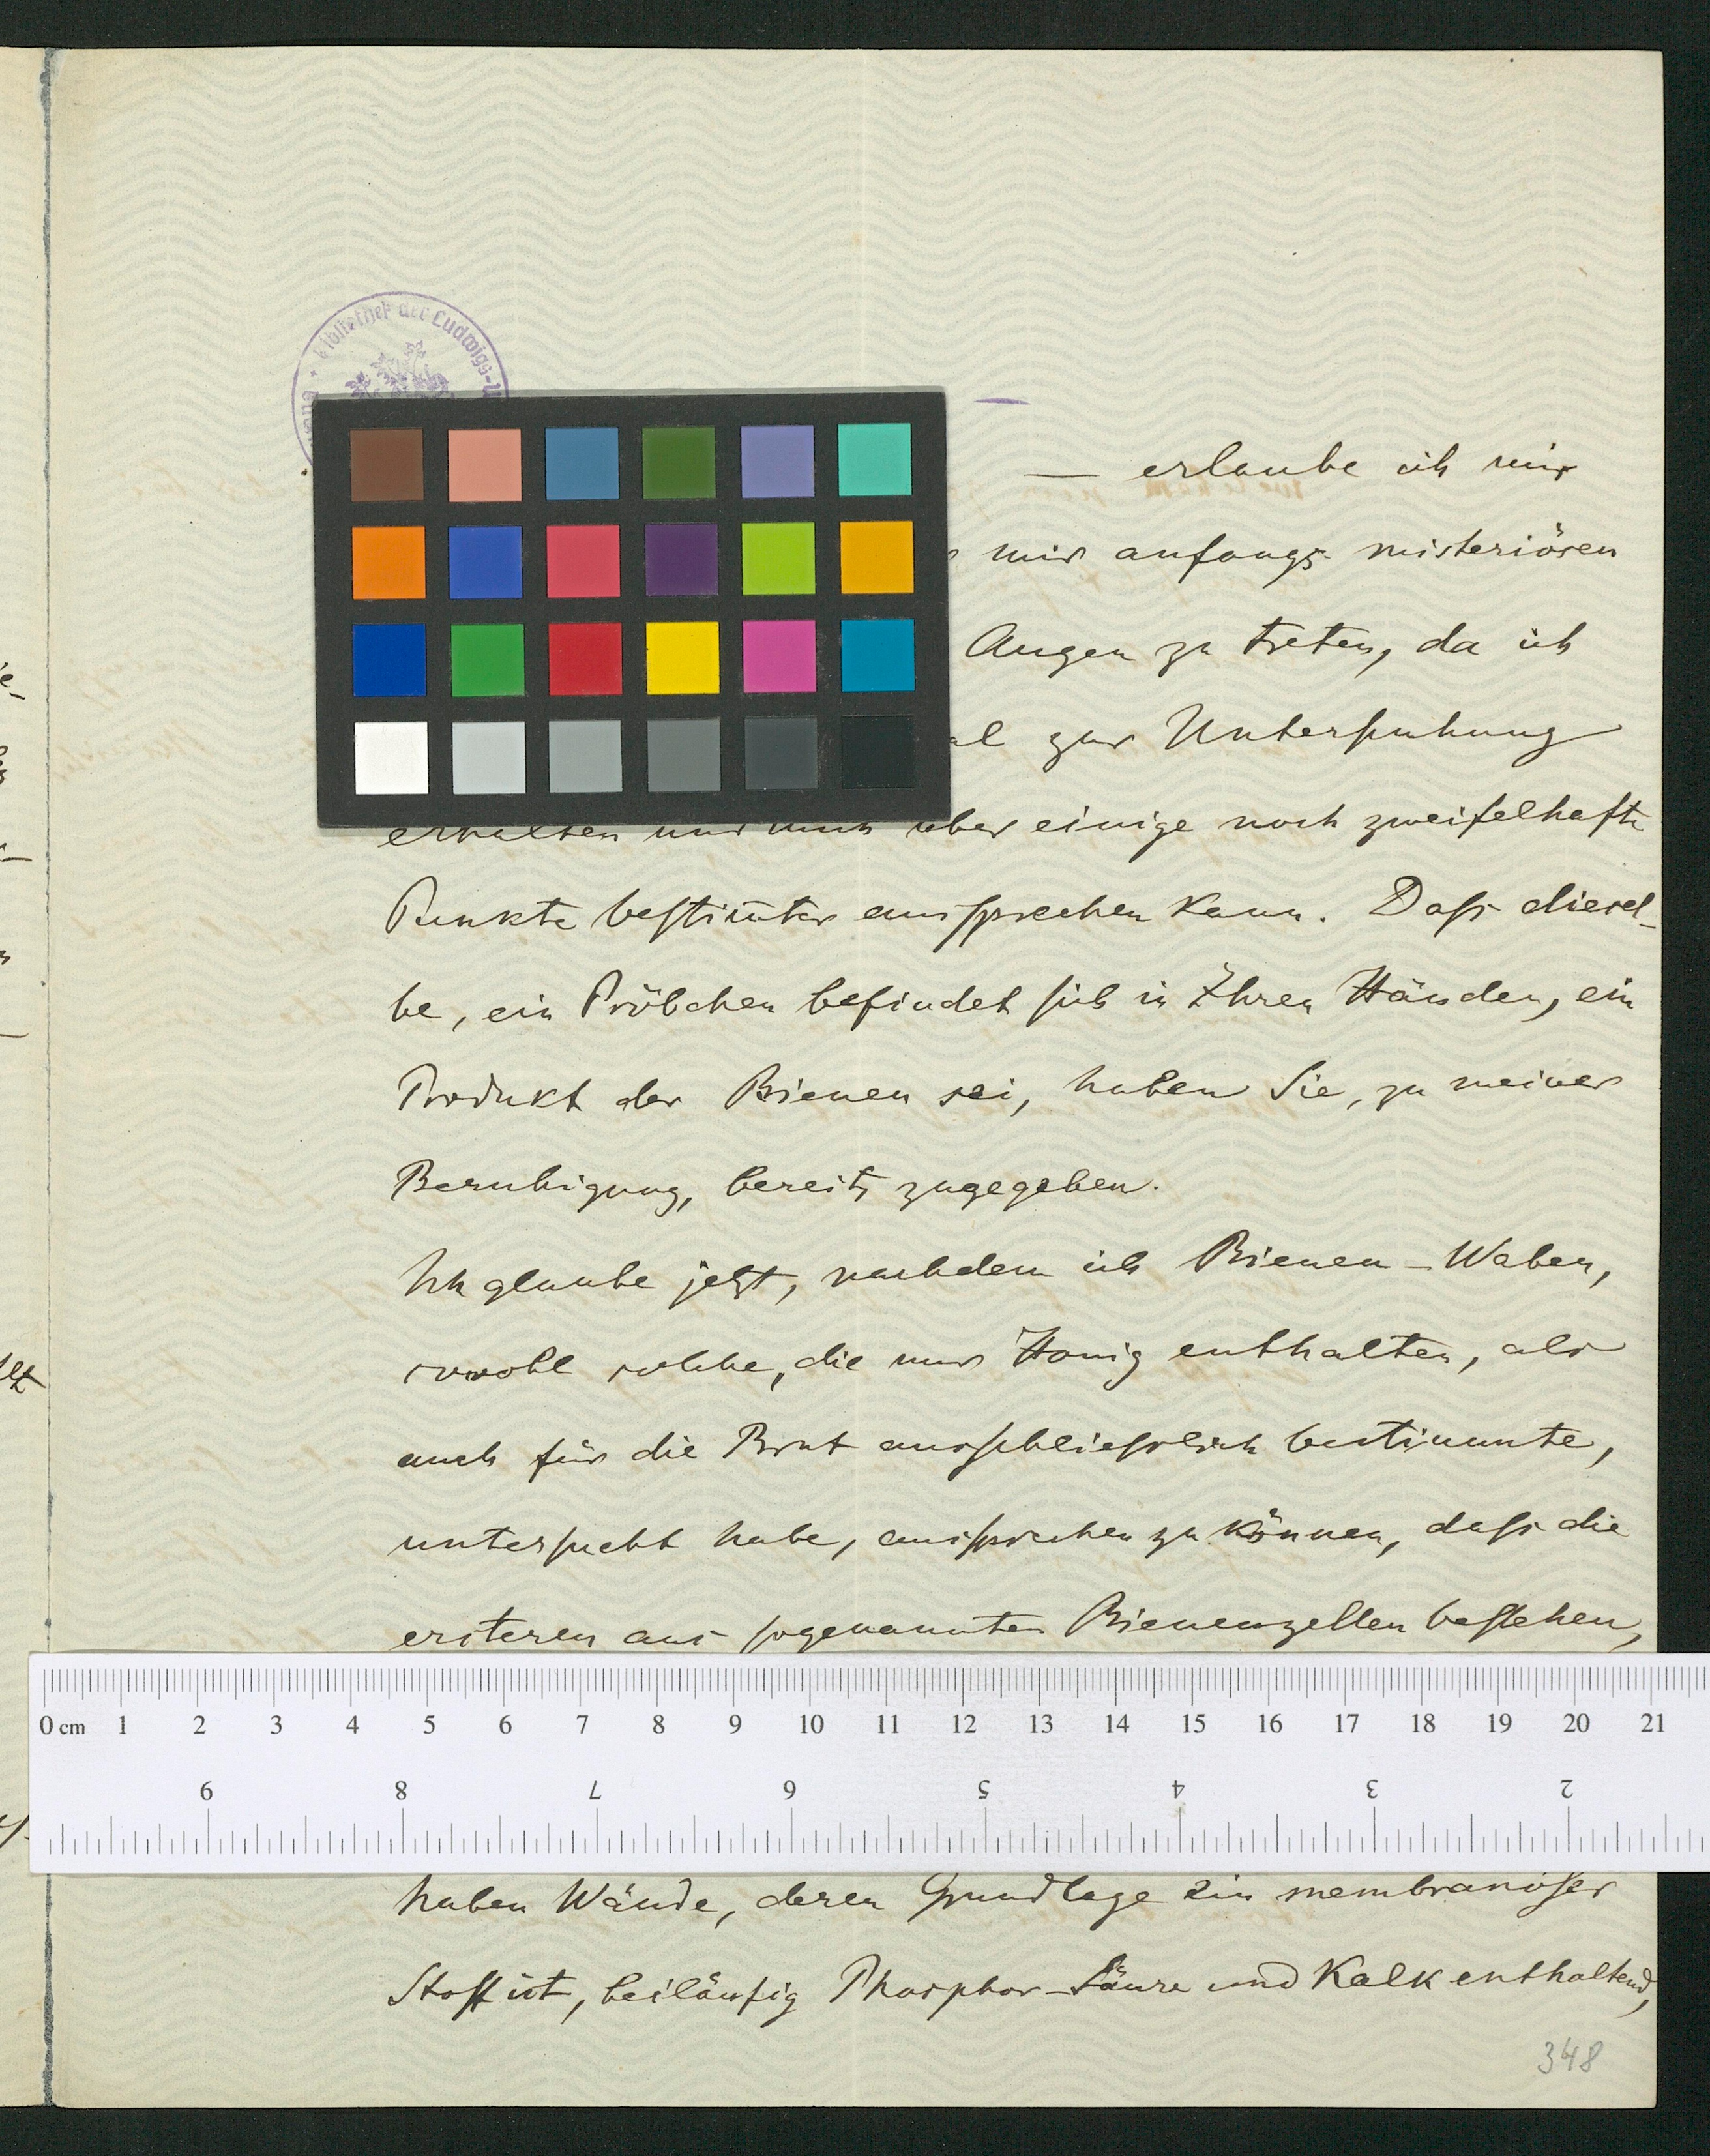 Bibliothek der Ludwigs-
— erlaube ich mir
mir anfangs misteriösen
Augen zu treten, da ich
al zur Untersuchung
erhalten und mich über einige noch zweifelhafte
Punkte bestim̅ter aussprechen kann. Dass diesel-
be, ein Pröbchen befindet sich in Ihren Händen, ein
Produkt der Bienen sei, haben Sie, zu meiner
Beruhigung, bereits zugegeben.
Ich glaube jetzt, nachdem ich Bienen-Waben,
sowohl solche, die nur Honig enthalten, als
auch für die Brut ausschliesslich bestimmte,
untersucht habe, aussprechen zu können, dass die
ersteren aus sogenannten Bienenzellen bestehen,
0 cm 1 2 3 4 5 6 7 8 9 10 11 12 13 14 15 16 17 18 19 20 21
9 8 7 6 5 4 3 2
haben Wände, deren Grundlage ein membranöser
Stoff ist, beiläufig Phosphor-Säure und Kalk enthaltend,
348